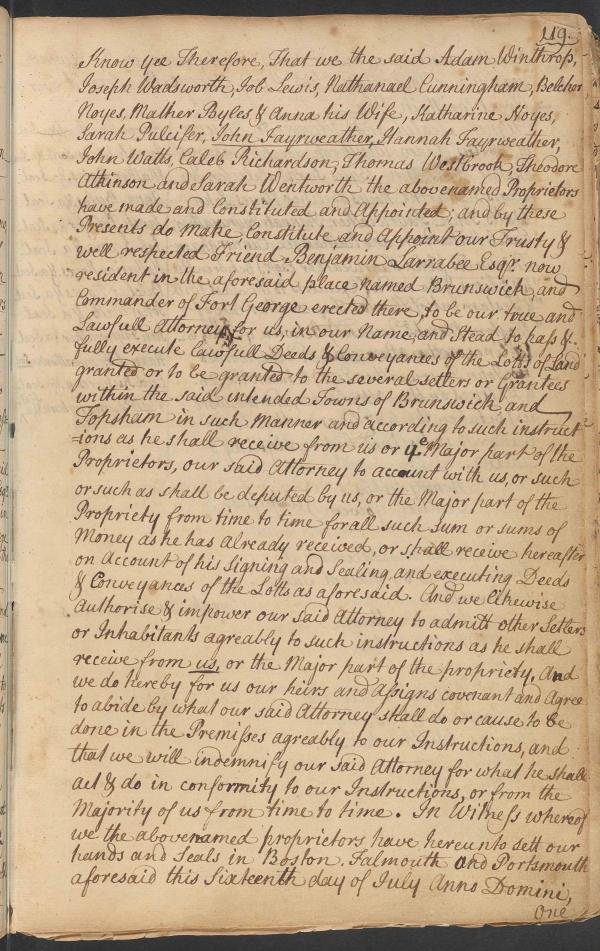 119.
Know yee Therefore, That we the said Adam Winthrop,
Joseph Wadsworth, Job Lewis, Nathanael Cunningham, Belcher
Noyes, Mather Byles & Anna his Wife, Katharine Noyes,
Sarah Pulcifer, John Fayrweather, Hannah Fayrweather,
John Watts, Caleb Richardson, Thomas Westbrook, Theodore
Atkinson and Sarah Wentworth the abovenamed Proprietors
have made and Constituted and Appointed; and by these
Presents do make Constitute and Appoint our Trusty &
well respected Friend Benjamin Larrabee Esqr. now
resident in the aforesaid place named Brunswick, and
Commander of Fort George erected there, to be our true and
Lawfull Attorney for us, in our Name, and Stead to pass &
fully execute Lawfull Deads & Conveyances of the Lotts of Land
granted or to be granted to the several setlers or Grantees
within the said intended Towns of Brunswick and
Topsham in such Manner and according to such instruct-
=ions as he shall receive from us or ye Major part of the
Proprietors, our said Attorney to account with us, or such
or such as shall be deputed by us, or the Major part of the
Propriety from time to time for all such Sum or sums of
Money as he has already received, or shall receive hereafter
on Account of his Signing and Sealing and executing Deeds
& Conveyances of the Lotts as aforesaid. And we likewise
Authorise & impower our said Attorney to admitt other Setlers
or Inhabitants agreably to such instructions as he shall
receive from us, or the Major part of the propriety, And
we do hereby for us our heirs and Assigns covenant and Agree
to abide by what our said Attorney shall do or cause to be
done in the Premisses agreably to our Instructions, and
that we will indemnify our said Attorney for what he shall
act & do in conformity to our Instructions, or from the
Majority of us from time to time. In Witness whereof
we the abovenamed proprietors have hereunto sett our
hands and Seals in Boston, Falmouth and Portsmouth
aforesaid this Sixteenth day of July Anno Domini,
One